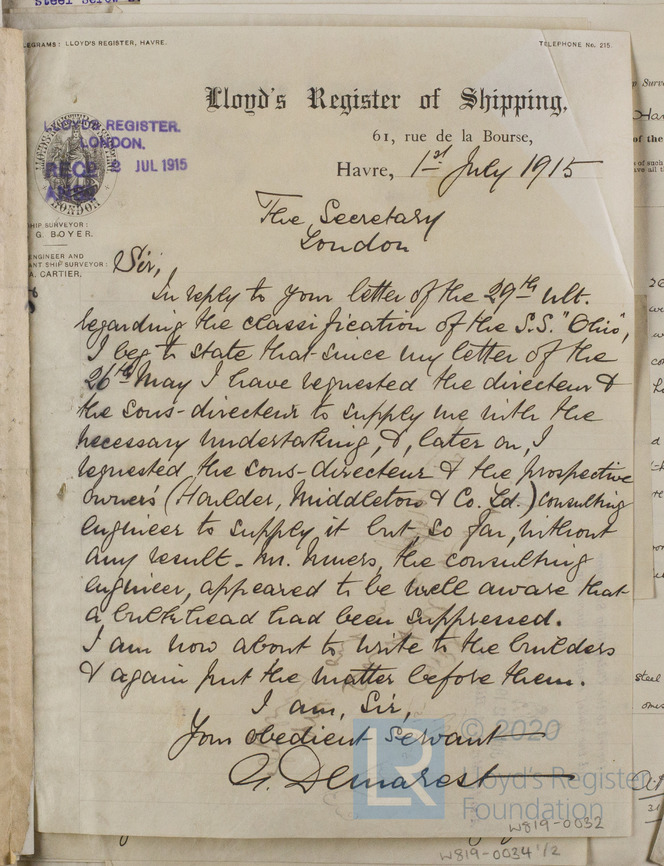 TELEGRAMS: LLOYD'S REGISTER, HAVRE.
TELEPHONE No. 215.
Lloyd's Register of Shipping,
61, rue de la Bourse,
Havre, 1st July 1915
LLOYD'S REGISTER.
LONDON.
REC'D 2 JUL 1915
SHIP SURVEYOR:
G. BOYER.
ENGINEER AND
ANT SHIP SURVEYOR:
A. CARTIER,
The Secretary
London
Sir,
In reply to your letter of the 29th ult.
regarding the classification of the S.S. "Ohio",
I beg to state that since my letter of the
26th May I have requested the directeur &
the sous-directeur to supply me with the
necessary undertaking, &, later on, I
requested the sous-directeur & the prospective
owners' (Houlder, Middleton & Co. Ld.) consulting
engineer to supply it but, so far, without
any result. Mr. the consulting
engineer, appeared to be well aware that
a bulkhead had been suppressed.
I am now about to write to the builders
& again put the matter before them.
I am, Sir,
Your obedient Servant
G. Demarest
© 2020
LR
Lloyd's Register
Foundation
W819-0032
W819-0034 1/2